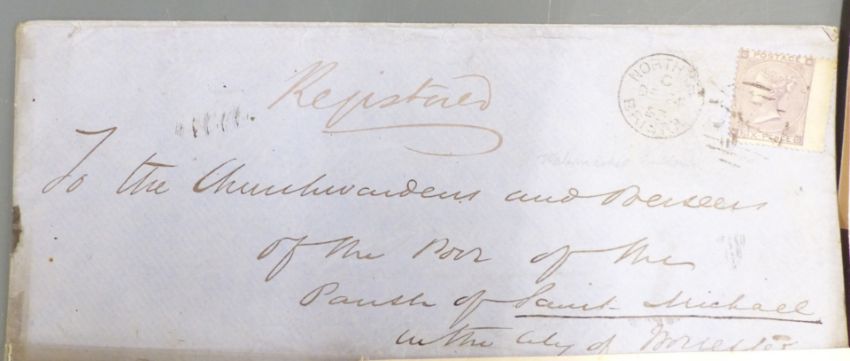 Registered
POSTAGE
NORTH ST
C
BRISTOL
SIX PENCE
To the Churchwardens and Overseers
of the Poor of the
Parish of Saint Michael
in the City of Worcester